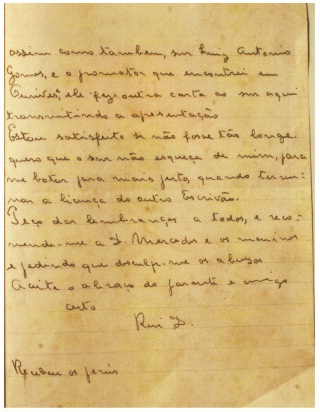 assim como tambem, snr Luiz Antonio
Gomes, e o promotor que encontrei em
elle fez outra carta ao snr aqui
transmitindo a apresentação
Estou satisfeito se não fosse tão longe.
quero que o snr não esqueça de mim, para
me botar para mais perto, quando termi-
nar a licença do outro Escrivão.
Peço dar lembranças a todos, e reco-
mende-me a D. Mercedes e os meninos
e pedindo que desculp-me os abusos
Aceite o abraço do parente e amigo
certo
Rui
Recebeu os